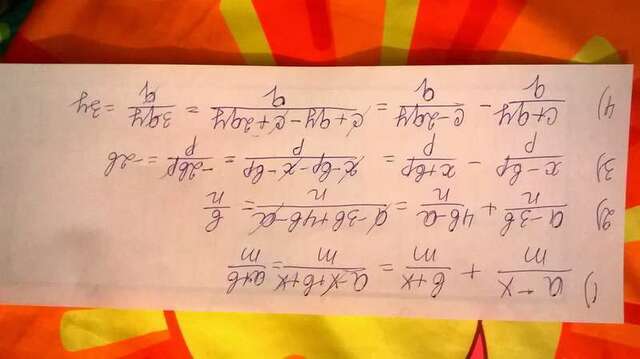 1) a-x/m + b+x/m = a-x+b+x/m = a+b/m
2) a-3b/n + 4b-a/n = a-3b+4b-a/n = b/n
3) x-bp/p - x+bp/p = x-bp-x-bp/p = -2bp/p = -2b
4) c+qy/q - c-2qy/q = c+qy-c+2qy/q = 3qy/q = 3y